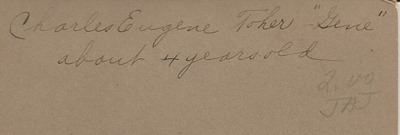 Charles Eugene Toher "Gene"
about 4 years old
2.00
JAJ